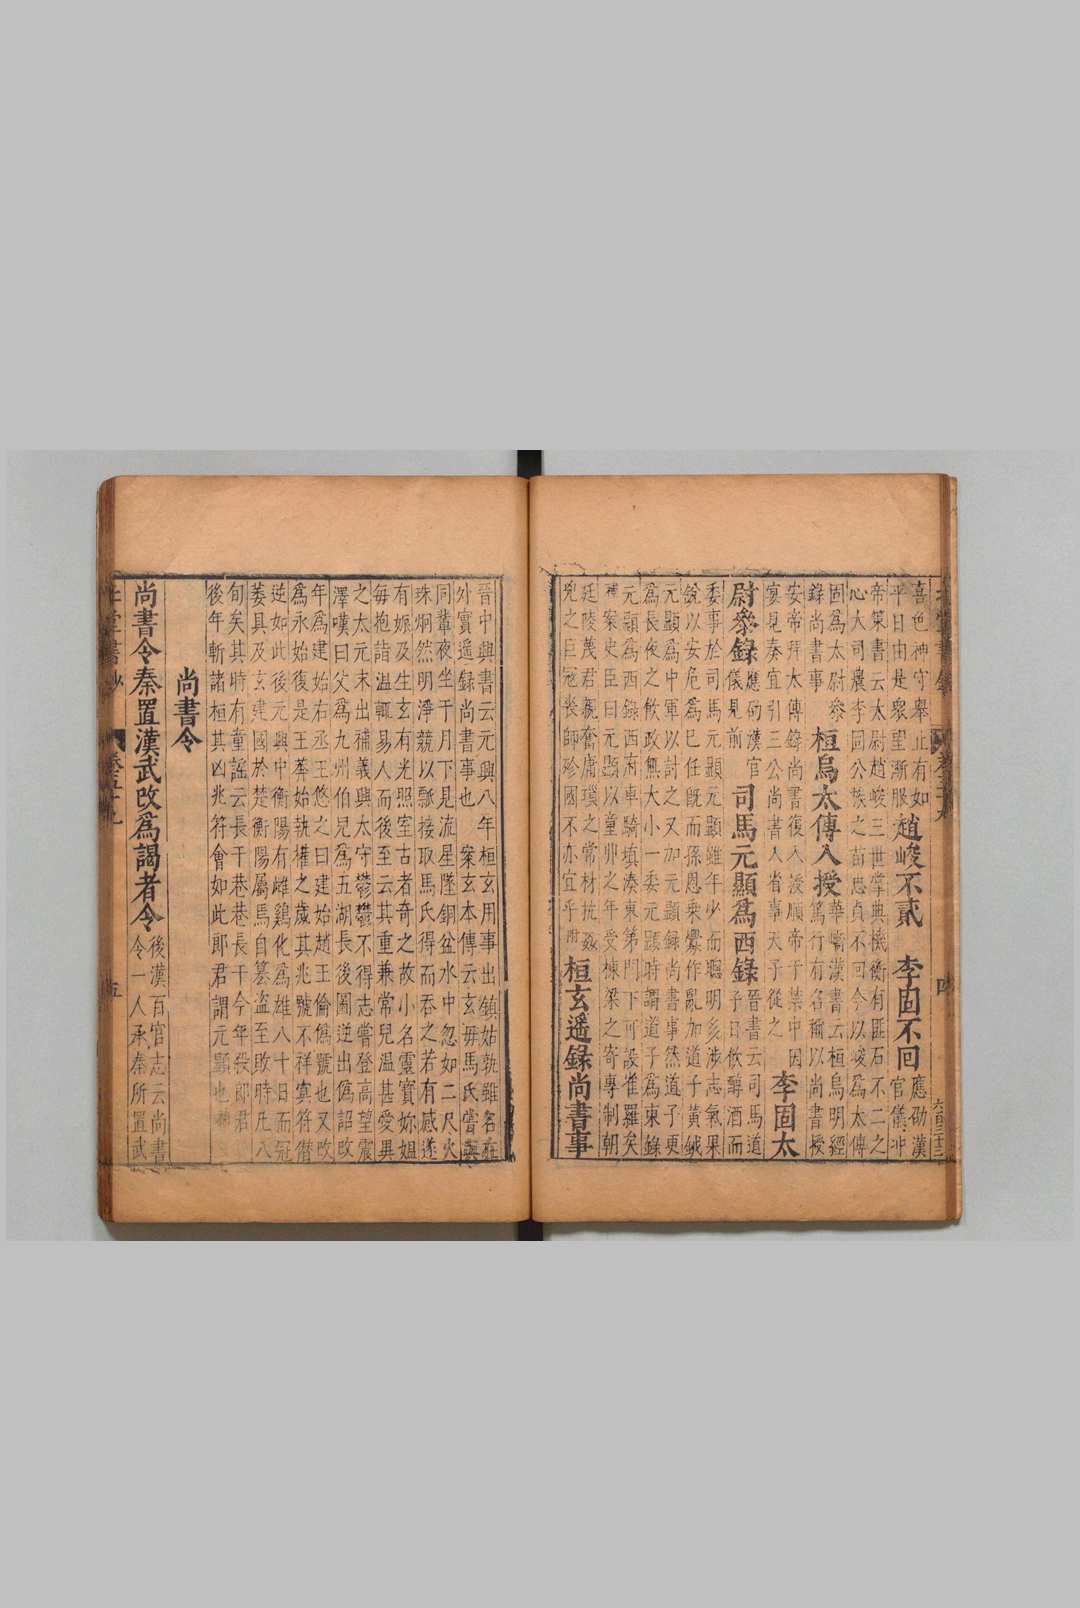 喜色神守舉止有如
平日由是衆望漸服
趙峻不貳
帝策書云太尉趙峻三世掌典機衡有匪石不二之
心大司農李固公族之苗忠貞不回今以峻爲太傅
李固不回
應劭漢
官儀冲
固爲太尉參
錄尚書事
桓焉太傅入授
華嶠漢書云桓焉明經
篤行有名稱以尚書授
安帝拜太傅錄尚書復入授順帝于禁中因
宴見奏宜引三公尚書入省事天子從之
李固太
尉參錄
應劭漢官
儀見前
司馬元顯爲西錄
晉書云司馬道
子日飲醇酒而
委事於司馬元顯元顯雖年少而聰明多涉志氣果
銳以安危爲已任旣而孫恩乘釁作亂加道子黃鉞
元顯爲中軍以討之又加元顯錄尚書事然道子更
爲長夜之飲政無大小一委元顯時謂道子爲東錄
元顯爲西錄西府車騎填湊東第門下可設雀羅矣
案史臣曰元顯以童丱之年受棟梁之寄專制朝
廷陵蔑君親奮庸瑣之常材抗姦
兇之巨冠喪師殄國不亦宜乎附
桓玄遥錄尚書事
晉中興書云元興八年桓玄用事出鎮姑孰雖名在
外實遥録尚書事也 案玄本傳云玄母馬氏嘗與
同輩夜坐于月下見流星墜銅盆水中忽如二尺火
珠炯然明淨競以瓢接取馬氏得而吞之若有感遂
有娠及生玄有光照室古者奇之故小名靈寶妳姐
每抱詣温輒易人而後至云其重兼常兒温甚愛異
之太元末出補義興太守鬱鬱不得志嘗登高望震
澤嘆曰父爲九州伯兒爲五湖長後圖逆出僞詔改
年爲建始右丞王悠之曰建始趙王倫僞號也又改
爲永始復是王莽始執權之歲其兆號不祥冥符僭
逆如此後元興中衡陽有雌鷄化爲雄八十日而冠
萎具及玄建國於楚衡陽屬馬自篡盗至敗時凡八
旬矣其時有童謠云長干巷巷長干今年殺郎君
後年斬諸桓其凶兆符會如此郎君謂元顯也
尚書令
尚書令秦置漢武改爲謁者令
後漢百官志云尚書
令一人承秦所置武
卷五十九
五